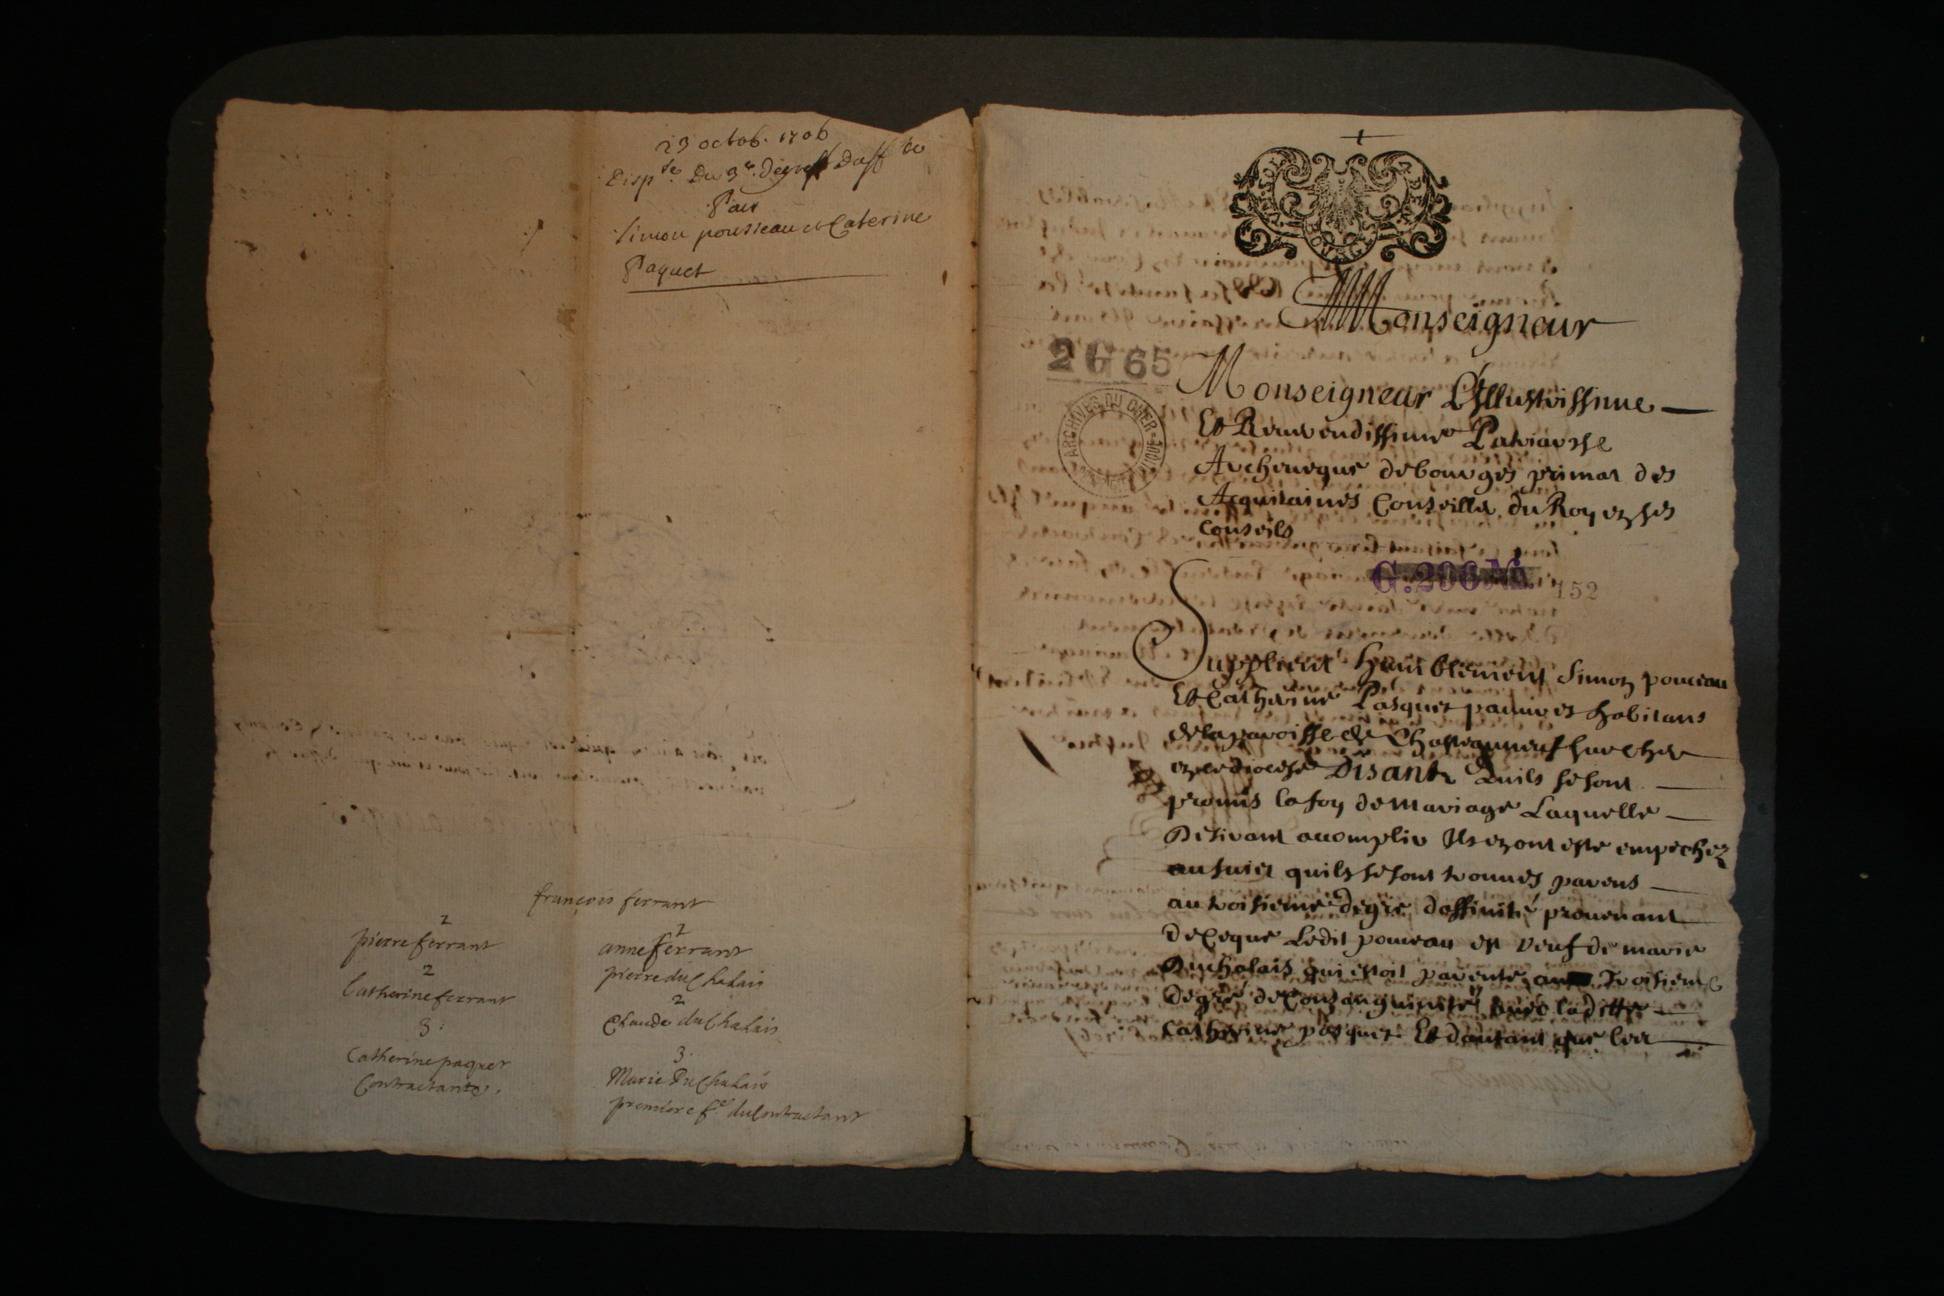 23 octob. 1706
Disp.te Du 3e. degré Daff.té
Par
Simon pousseau et Caterine
Paquet
françois ferrant
2
pierre ferrant
2
Catherine ferrant
3
Catherine paquet
Contractante.
2
anne ferrant
pierre du Chalais
2
Claude du Chalais
3
Marie Du Chalais
premiere f.e du Contractant
Monseigneur
2 G 65
ARCHIVES DU CHER
Monseigneur L'Illustrissime
Et Reverendissime Patriarche
Archeveque de bourges primat des
Acquitaines Conseiller du Roy en ses
Conseils
G. 206
152
Supplient humblement Simon pouceau
Et Catherine Pasquet pauvres habitans
de la paroisse de Chasteauneuf sur Cher
en ce diocese Disant Quils se sont
promis la foy de mariage Laquelle
Desirant accomplir Ils en ont esté empechez
au suiet quils se sont trouvés parens
au troisieme degré daffinité provenant
de Ceque Ledit pouceau est veuf de marie
Duchalais qui estoit parente au troisieme
degré de Consanguinité avec laditte
Catherine pasquet Et dautant que leur